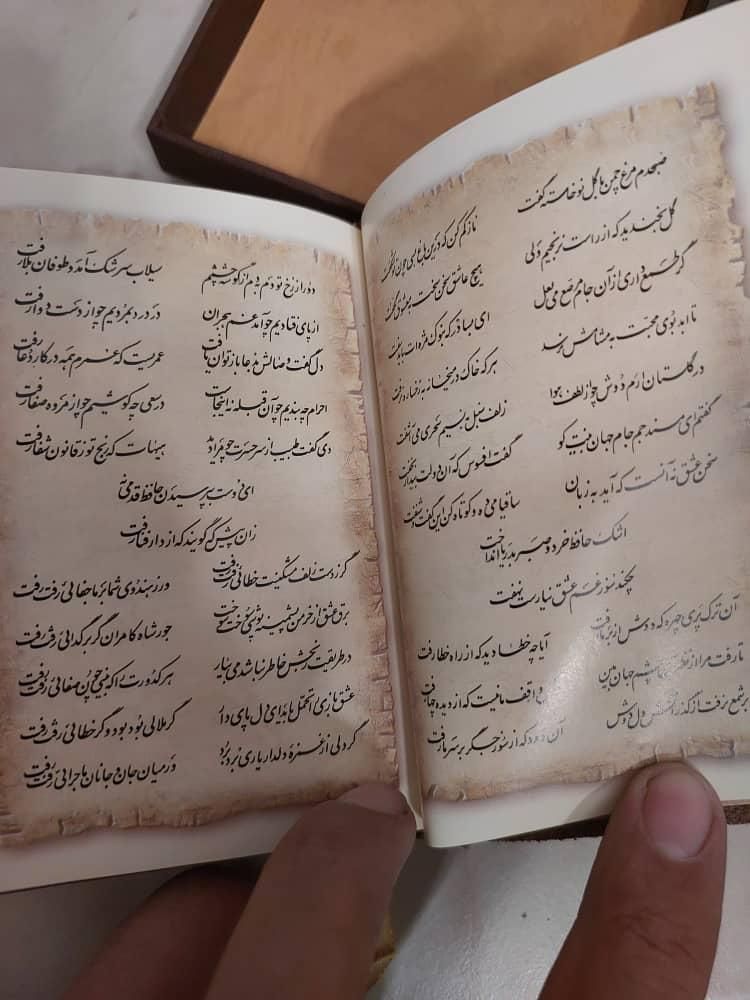 صبحدم مرغ چمن با گل نوخاسته گفت ناز کم کن که درین باغ بسی چون تو شکفت
گل بخندید که از راست نرنجیم ولی هیچ عاشق سخن سخت به معشوق نگفت
گر طمع داری از آن جام مرصع می لعل ای بسا در که بنوک مژه ات باید سفت
تا ابد بوی محبت به مشامش نرسد هر که خاک در میخانه به رخساره نرفت
در گلستان ارم دوش چو از لطف هوا زلف سنبل به نسیم سحری می آشفت
گفتم ای مسند جم جام جهان بینت کو گفت افسوس که آن دولت بیدار بخفت
سخن عشق نه آنست که آید به زبان ساقیا می ده و کوتاه کن این گفت و شنفت
اشک حافظ خرد و صبر به دریا انداخت
چکند سوز غم عشق نیارست نهفت
آن ترک پری چهره که دوش از بر ما رفت آیا چه خطا دید که از راه خطا رفت
تا رفت مرا از نظر آن چشم جهان بین واقف ما نیست که از دیده چها رفت
بر شمع نرفت از گذر آتش دل دوش آن دود که از سوز جگر بر سر ما رفت
دور از رخ تو دم بدم از گوشه چشمم سیلاب سرشک آمد و طوفان بلا رفت
از پای فتادیم چو آمد غم هجران در درد بمردیم چو از دست دوا رفت
دل گفت وصالش به دعا باز توان یافت عمریست که عمرم همه در کار دعا رفت
احرام چه بندیم چو آن قبله نه اینجاست در سعی چه کوشیم چو از مروه صفا رفت
دی گفت طبیب از سر حسرت چو مرا دید هیهات که رنج تو ز قانون شفا رفت
ای دوست به پرسیدن حافظ قدمی نه
زان پیش که گویند که از دار فنا رفت
گر ز دست زلف مشکینت خطائی رفت رفت ور ز هندوی شما بر ما جفائی رفت رفت
برق عشق ار خرمن پشمینه پوشی سوخت سوخت جور شاه کامران گر بر گدائی رفت رفت
در طریقت رنجش خاطر نباشد می بیار هر کدورت را که بینی چون صفائی رفت رفت
عشق بازی را تحمل باید ای دل پای دار گر ملالی بود بود و گر خطائی رفت رفت
گر دلی از غمزه دلدار باری برد برد ور میان جان و جانان ماجرائی رفت رفت